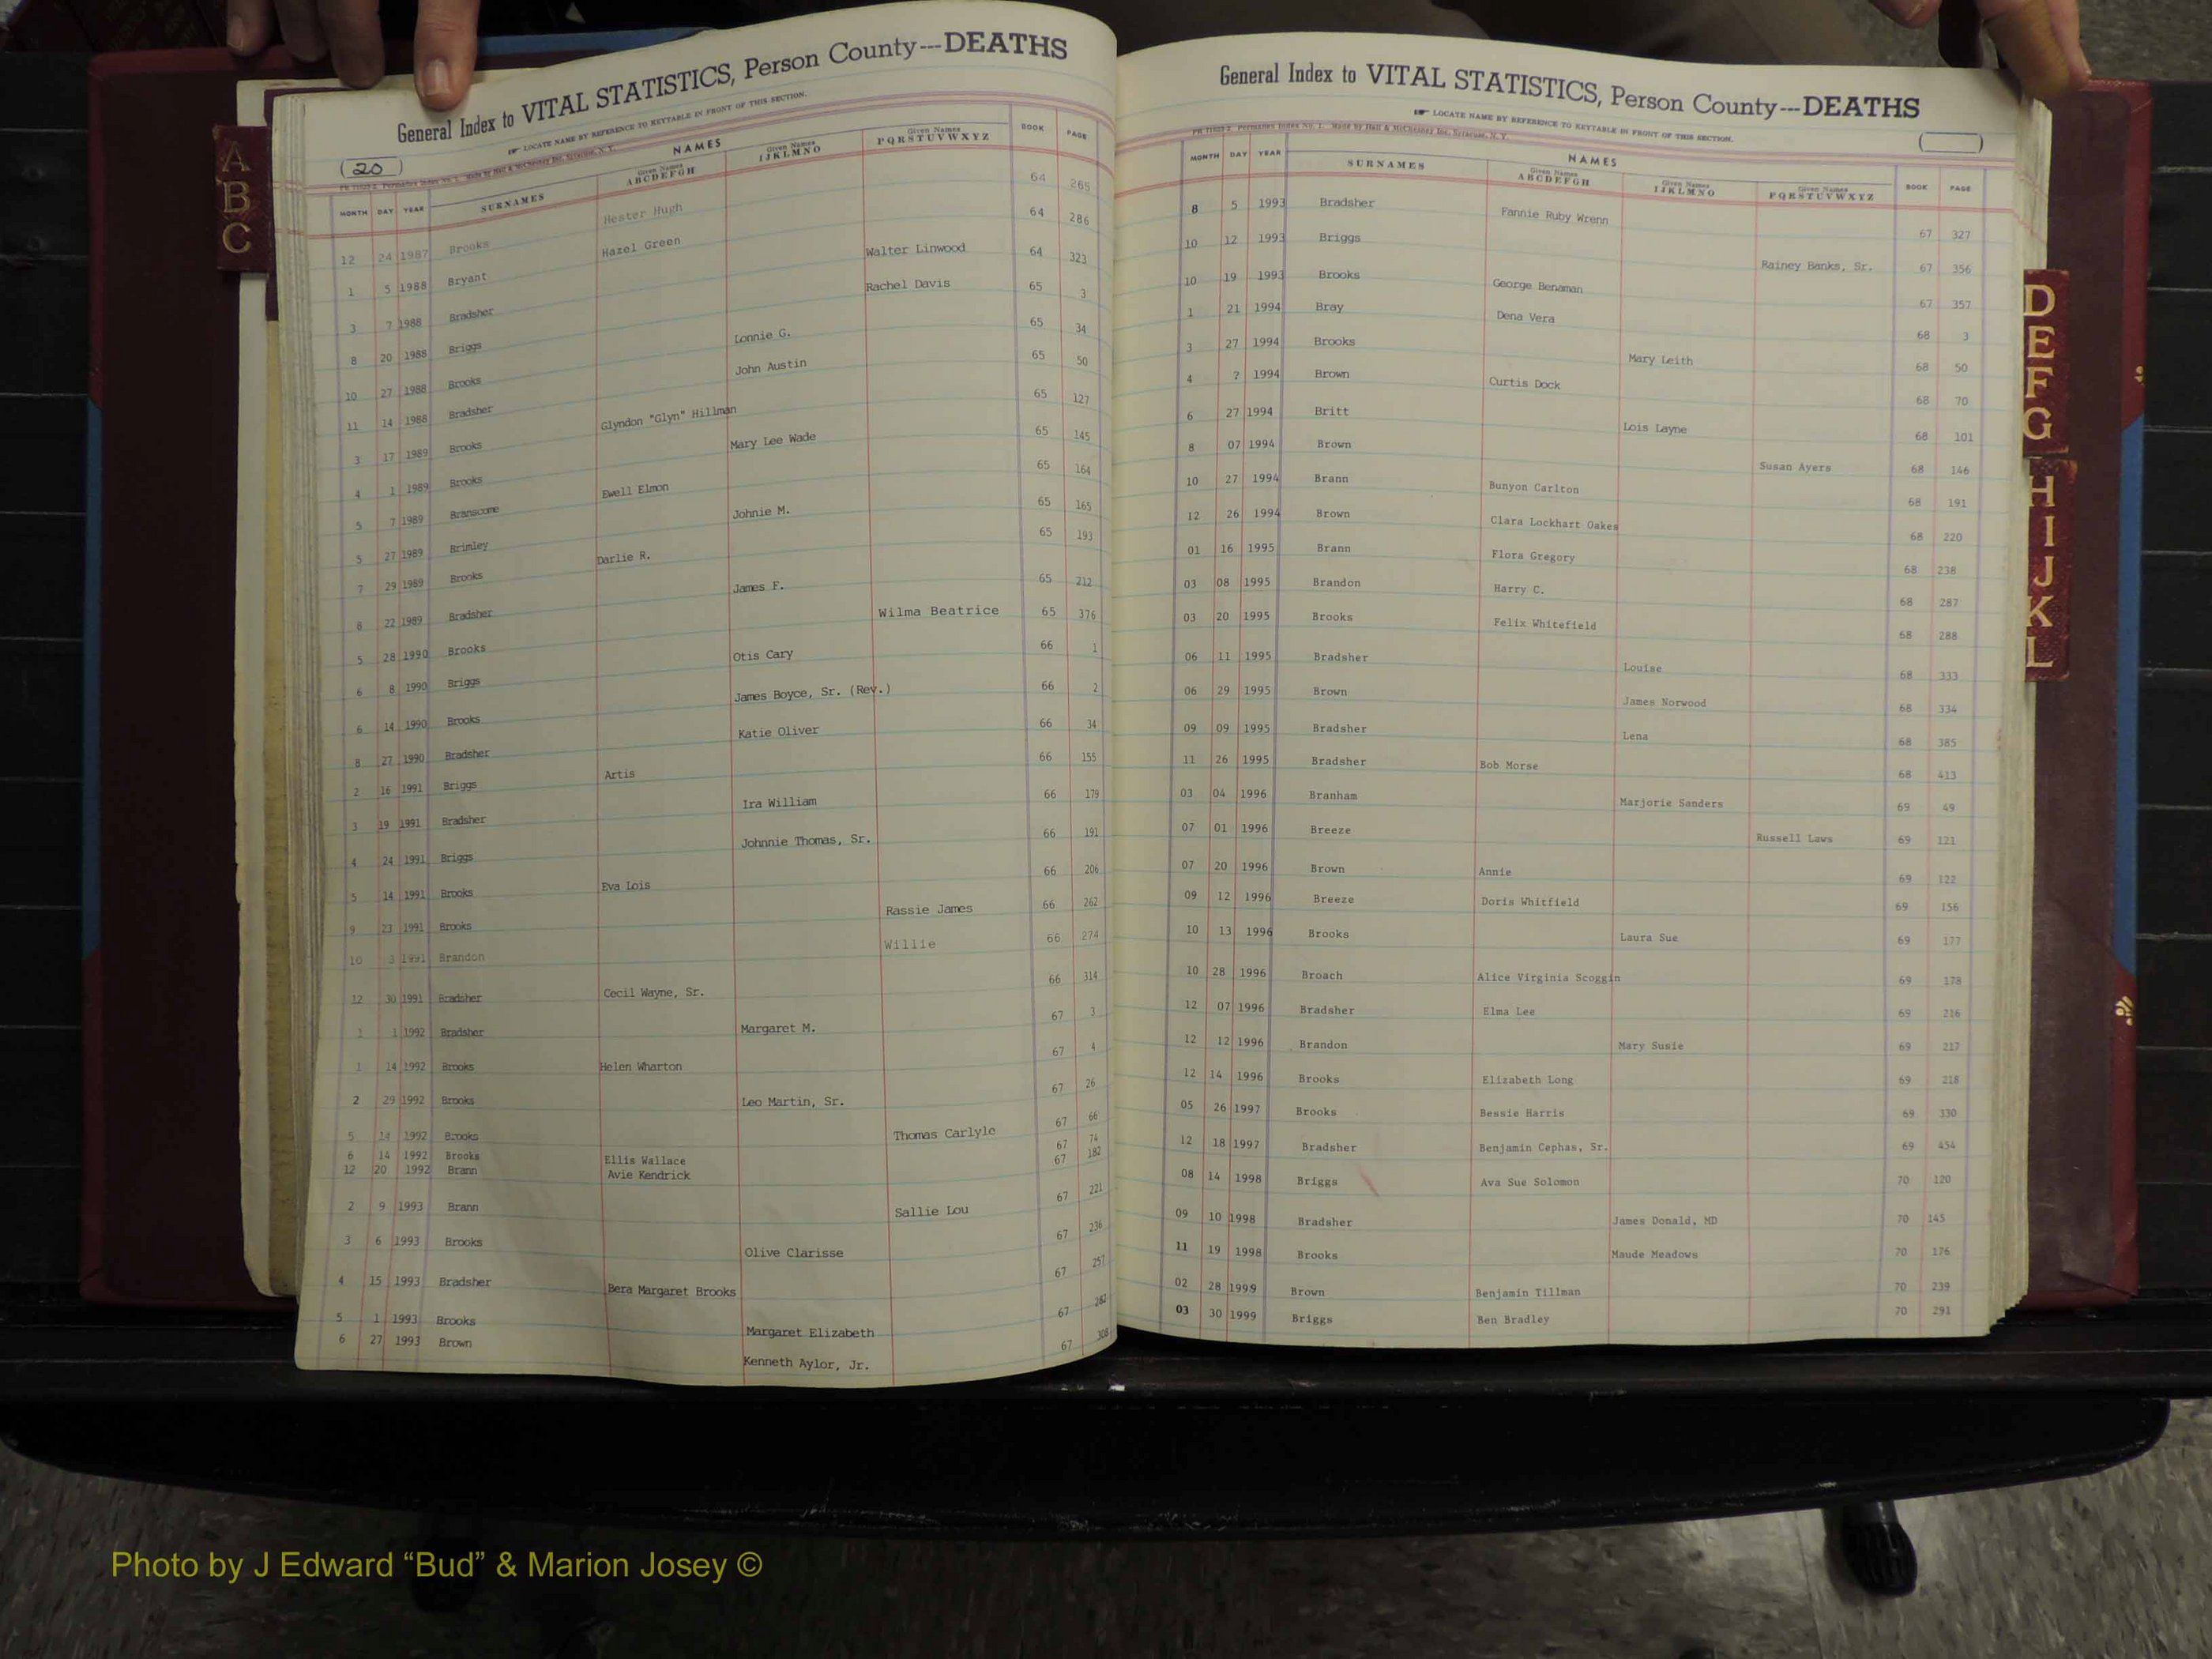 A
B
C
General Index to VITAL STATISTICS, Person County---DEATHS
LOCATE NAME BY REFERENCE TO KEYTABLE IN FRONT OF THIS SECTION.
20
NAMES
MONTH DAY YEAR SURNAMES Given Names ABCDEFGH Given Names IJKLMNO Given Names PQRSTUVWXYZ BOOK PAGE
12 24 1987 Brooks Hester Hugh 64 265
1 5 1988 Bryant Hazel Green 64 286
3 7 1988 Bradsher Walter Linwood 64 323
8 20 1988 Briggs Rachel Davis 65 3
10 27 1988 Brooks Lonnie G. 65 34
11 14 1988 Bradsher John Austin 65 50
3 17 1989 Brooks Glyndon "Glyn" Hillman 65 127
4 1 1989 Brooks Mary Lee Wade 65 145
5 7 1989 Branscome Ewell Elmon 65 164
5 27 1989 Brimley Johnie M. 65 165
7 29 1989 Brooks Darlie R. 65 193
8 22 1989 Bradsher James F. 65 212
5 28 1990 Brooks Wilma Beatrice 65 376
6 8 1990 Briggs Otis Cary 66 1
6 14 1990 Brooks James Boyce, Sr. (Rev.) 66 2
8 27 1990 Bradsher Katie Oliver 66 34
2 16 1991 Briggs Artis 66 155
3 19 1991 Bradsher Ira William 66 179
4 24 1991 Briggs Johnnie Thomas, Sr. 66 191
5 14 1991 Brooks Eva Lois 66 206
9 23 1991 Brooks Rassie James 66 262
10 3 1991 Brandon Willie 66 274
12 30 1991 Bradsher Cecil Wayne, Sr. 66 314
1 1 1992 Bradsher Margaret M. 67 3
1 14 1992 Brooks Helen Wharton 67 4
2 29 1992 Brooks Leo Martin, Sr. 67 26
5 14 1992 Brooks Thomas Carlyle 67 66
6 14 1992 Brooks Ellis Wallace 67 74
12 20 1992 Brann Avie Kendrick 67 182
2 9 1993 Brann Sallie Lou 67 221
3 6 1993 Brooks Olive Clarisse 67 236
4 15 1993 Bradsher Bera Margaret Brooks 67 257
5 1 1993 Brooks Margaret Elizabeth 67 282
6 27 1993 Brown Kenneth Aylor, Jr. 67 308
General Index to VITAL STATISTICS, Person County---DEATHS
LOCATE NAME BY REFERENCE TO KEYTABLE IN FRONT OF THIS SECTION.
NAMES
MONTH DAY YEAR SURNAMES Given Names ABCDEFGH Given Names IJKLMNO Given Names PQRSTUVWXYZ BOOK PAGE
8 5 1993 Bradsher Fannie Ruby Wrenn 67 327
10 12 1993 Briggs Rainey Banks, Sr. 67 356
10 19 1993 Brooks George Benaman 67 357
1 21 1994 Bray Dena Vera 68 3
3 27 1994 Brooks Mary Leith 68 50
4 ? 1994 Brown Curtis Dock 68 70
6 27 1994 Britt Lois Layne 68 101
8 07 1994 Brown Susan Ayers 68 146
10 27 1994 Brann Bunyon Carlton 68 191
12 26 1994 Brown Clara Lockhart Oakes 68 220
01 16 1995 Brann Flora Gregory 68 238
03 08 1995 Brandon Harry C. 68 287
03 20 1995 Brooks Felix Whitefield 68 288
06 11 1995 Bradsher Louise 68 333
06 29 1995 Brown James Norwood 68 334
09 09 1995 Bradsher Lena 68 385
11 26 1995 Bradsher Bob Morse 68 413
03 04 1996 Branham Marjorie Sanders 69 49
07 01 1996 Breeze Russell Laws 69 121
07 20 1996 Brown Annie 69 122
09 12 1996 Breeze Doris Whitfield 69 156
10 13 1996 Brooks Laura Sue 69 177
10 28 1996 Broach Alice Virginia Scoggin 69 178
12 07 1996 Bradsher Elma Lee 69 216
12 12 1996 Brandon Mary Susie 69 217
12 14 1996 Brooks Elizabeth Long 69 218
05 26 1997 Brooks Bessie Harris 69 330
12 18 1997 Bradsher Benjamin Cephas, Sr. 69 454
08 14 1998 Briggs Ava Sue Solomon 70 120
09 10 1998 Bradsher James Donald, MD 70 145
11 19 1998 Brooks Maude Meadows 70 176
02 28 1999 Brown Benjamin Tillman 70 239
03 30 1999 Briggs Ben Bradley 70 291
D
E
F
G
H
I
J
K
L
Photo by J Edward “Bud” & Marion Josey ©